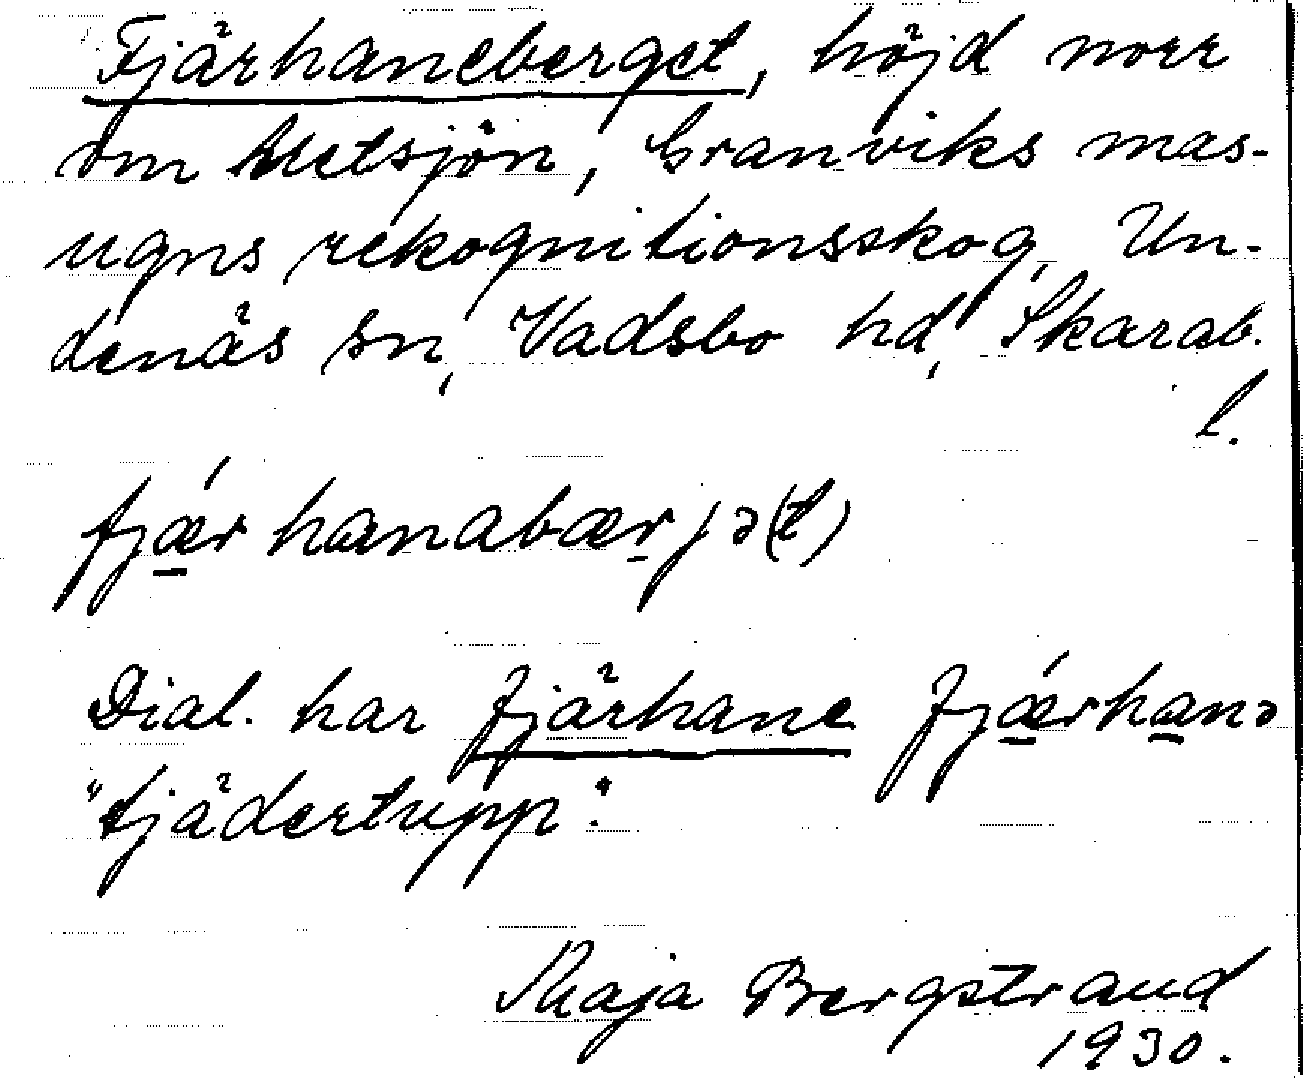 Fjärhaneberget, höjd norr
om Metsjön, Granviks mas-
ugns rekognitionsskog, Un-
denäs sn, Vadsbo hd, Skarab.
l.
fjǽrhanabærjə(t)
Dial. har fjärhane fjǽrhanə
"fjädertupp".
Maja Bergstrand
1930.